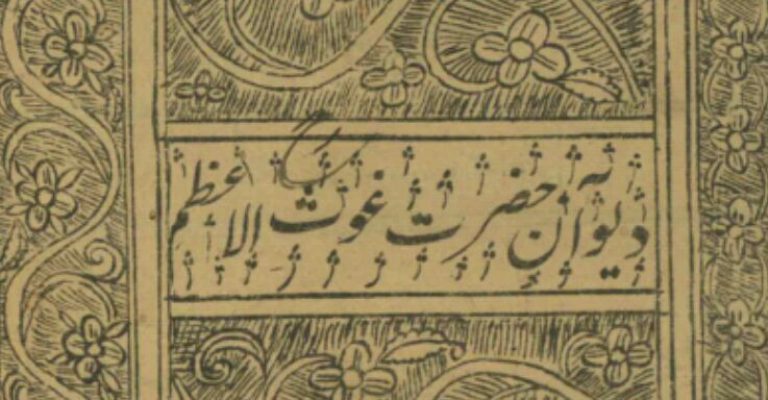 دیوان حضرت غوث الاعظم